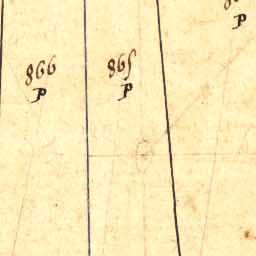 866
P
865
P
P